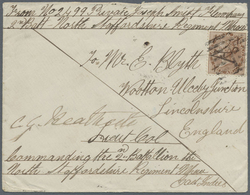 From No 2499 Private
2nd Batt North Staffordshire Regiment
To Mr. E. Blyth
Wootton Ulceby Junction
Lincolnshire
England
Lieut Col
Commanding the 2nd Battalion the
North Staffordshire Regiment
East Indies